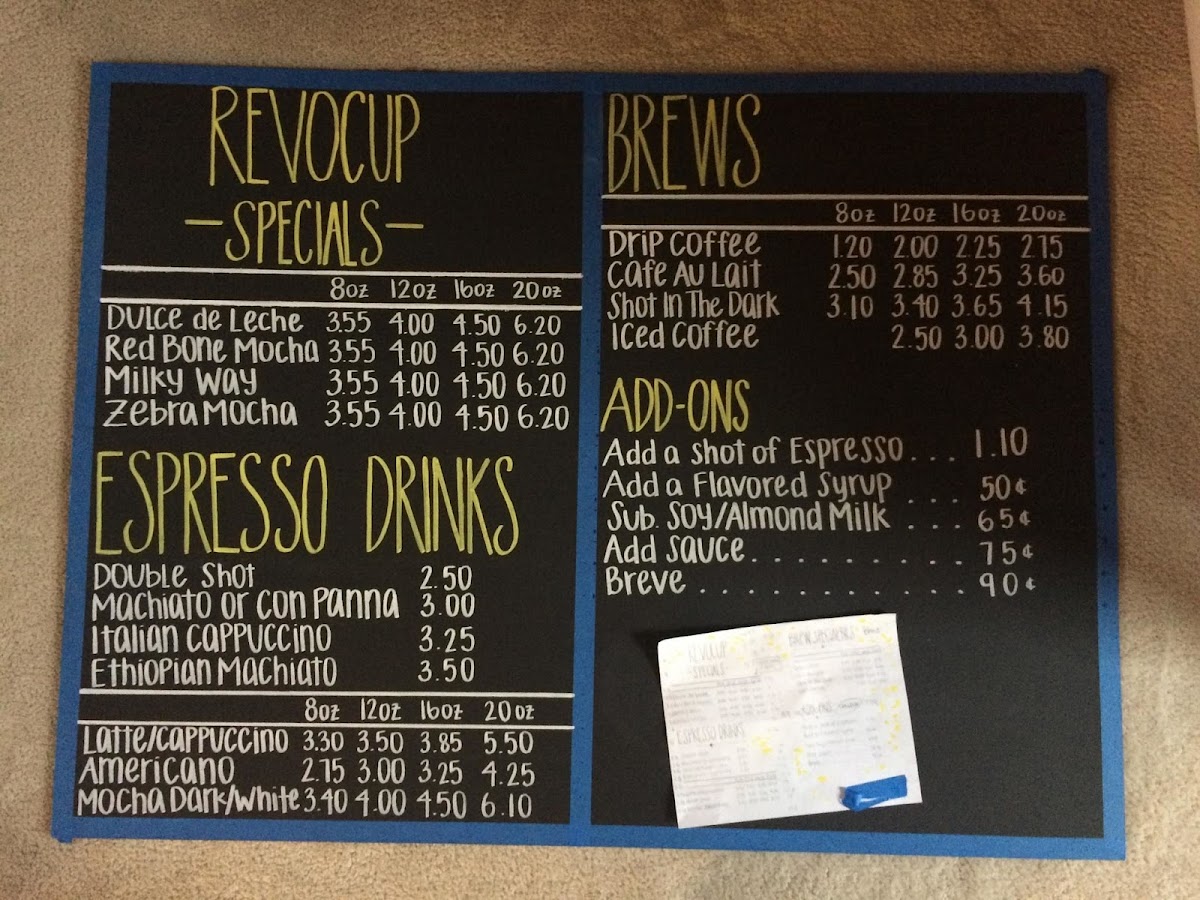 REVOCUP
-SPECIALS-
8oz 12oz 16oz 20oz
Dulce de Leche 3.55 4.00 4.50 6.20
Red Bone Mocha 3.55 4.00 4.50 6.20
Milky Way 3.55 4.00 4.50 6.20
Zebra Mocha 3.55 4.00 4.50 6.20
ESPRESSO DRINKS
Double Shot 2.50
Machiato or Con Panna 3.00
Italian Cappuccino 3.25
Ethiopian Machiato 3.50
8oz 12oz 16oz 20oz
Latte/Cappuccino 3.30 3.50 3.85 5.50
Americano 2.75 3.00 3.25 4.25
Mocha Dark/White 3.40 4.00 4.50 6.10
BREWS
8oz 12oz 16oz 20oz
Drip Coffee 1.20 2.00 2.25 2.75
Cafe Au Lait 2.50 2.85 3.25 3.60
Shot In The Dark 3.10 3.40 3.65 4.15
Iced Coffee 2.50 3.00 3.80
ADD-ONS
Add a Shot of Espresso... 1.10
Add a Flavored Syrup ... 50¢
Sub. Soy/Almond Milk ... 65¢
Add Sauce......... 75¢
Breve ............ 90¢
REVOCUP
-SPECIALS-
ESPRESSO DRINKS
ADD-ONS